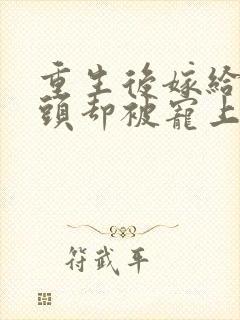 重生後嫁給
頭却被寵上
符武平